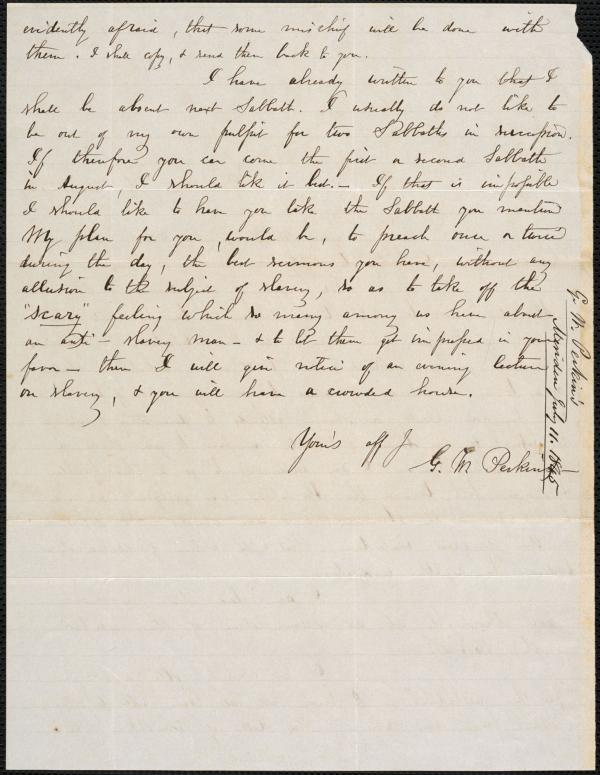 evidently afraid, that some mischief will be done with
them. I shall copy, & send them back to you.
I have already written to you that I
shall be absent next Sabbath. I usually do not like to
be out of my own pulpit for two Sabbaths in succession.
If therefore you can come the first or second Sabbath
in August, I should like it best. – If that is impossible
I should like to have you take the Sabbath you mention
My plan for you, would be, to preach once or twice
during the day, the best sermons you have, without any
allusion to the subject of slavery, so as to take off the
"scary" feeling which so many among us have about
an anti-slavery man – & to let them get impressed in your
favor – then I will give notice of an evening lecture
on slavery, & you will have a crowded house.
Your's aff J
G. W. Perkins
G. W. Perkins
Meriden July 11. 1845